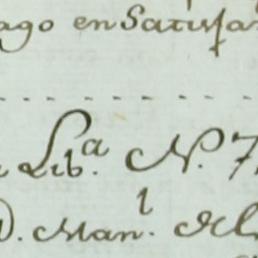 ago en Satisfa
Lib.ª N. 7
D. Man.l de